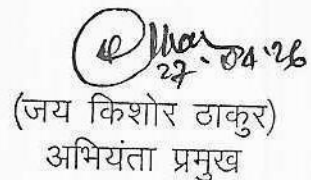 27.04.26
(जय किशोर ठाकुर)
अभियंता प्रमुख